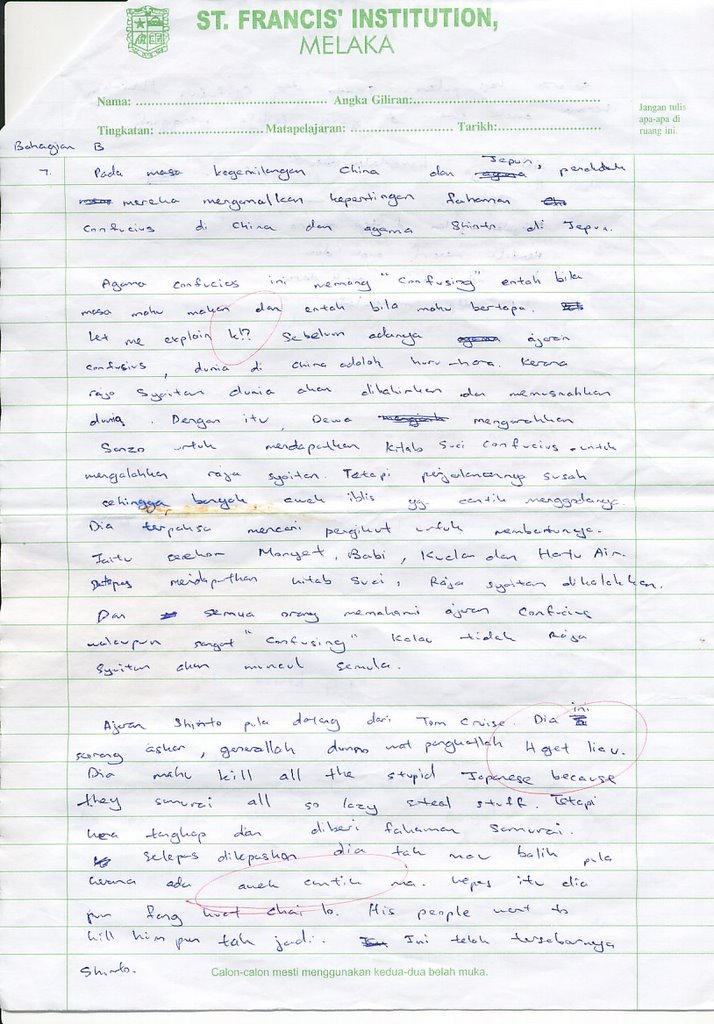 ST. FRANCIS' INSTITUTION,
MELAKA
Nama: ............ Angka Giliran:............
Jangan tulis
apa-apa di
ruang ini.
Tingkatan: ............ Matapelajaran: ............ Tarikh:............
Bahagian B
7. Pada masa kegemilangan China dan Jepun, penduduk
mereka mengamalkan kepentingan fahaman
Confucius di China dan agama Shinto di Jepun.
Agama Confucius ini memang "Confusing" entah bila
masa mahu makan dan entah bila mahu bertapa.
Let me explain k!? Sebelum adanya ajaran
confusius, dunia di China adalah huru-hara. Kerana
raja Syaitan dunia akan dilahirkan dan memusnahkan
dunia. Dengan itu, Dewa mengarahkan
Sanzo untuk mendapatkan kitab Suci Confucius untuk
mengalahkan raja syaitan. Tetapi perjalanannya susah
sehingga banyak awek iblis yg cantik menggodanya.
Dia terpaksa mencari pengikut untuk membantunya.
Iaitu seekor Monyet, Babi, Kuda dan Hantu Air.
Selepas mendapatkan kitab Suci, Raja syaitan dikalahkan.
Dan semua orang memahami ajaran Confucius
walaupun sangat "Confusing" Kalau tidak Raja
Syaitan akan muncul semula.
Ajaran Shinto pula datang dari Tom Cruise. Dia ini
seorang askar, generallah dunno wat pangkatlah 4get liau.
Dia mahu kill all the stupid Japanese because
they samurai all so lazy steal stuff. Tetapi
kena tangkap dan diberi fahaman Samurai.
Selepas dilepaskan dia tak mau balik pula
kerana ada awek cantik ma. Lepas itu dia
pun fang huat chai lo. His people want to
kill him pun tak jadi. Ini telah tersebarnya
Shinto.
Calon-calon mesti menggunakan kedua-dua belah muka.